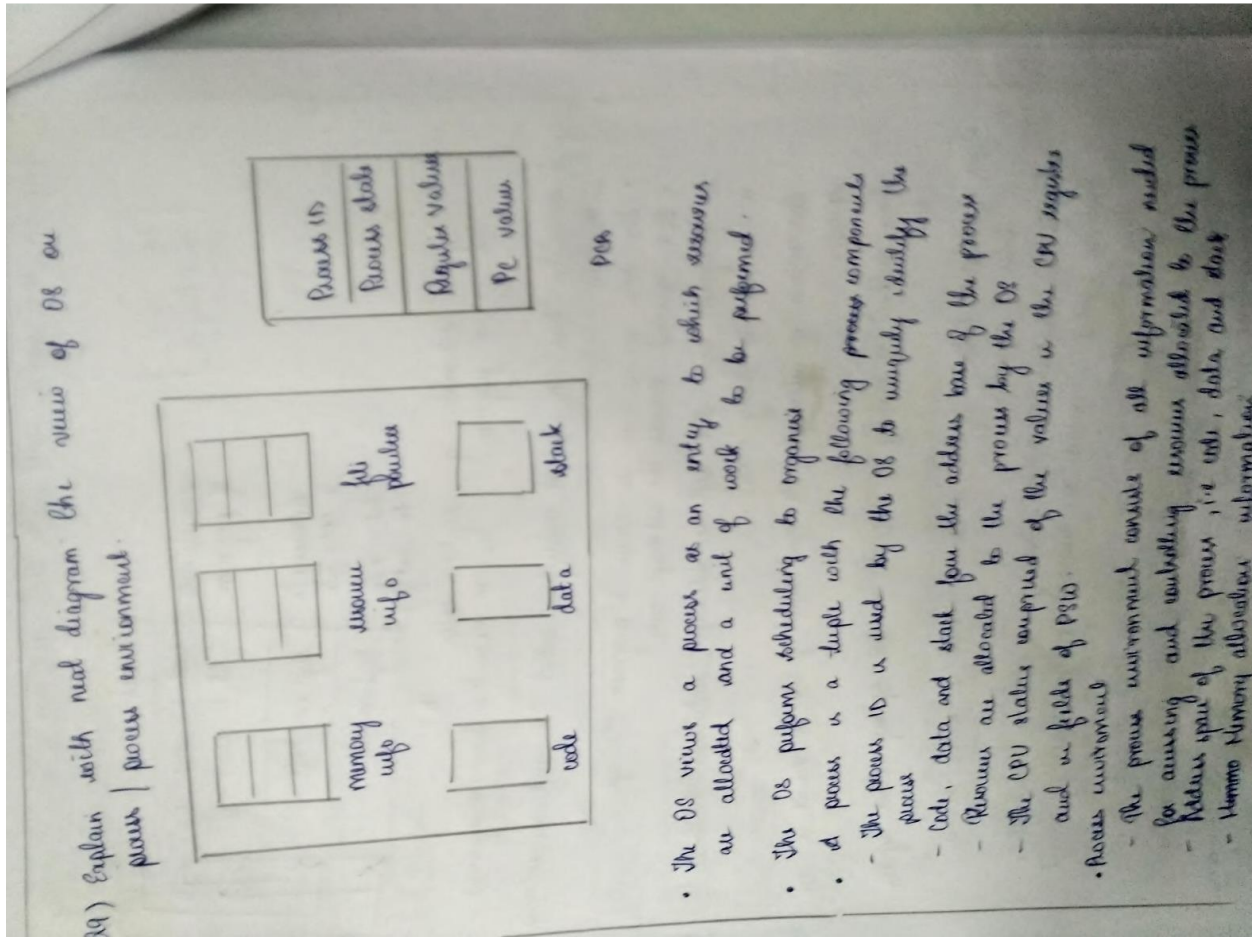 29) Explain with neat diagram the view of OS on
process / process environment.
memory
info
resource
info
file
pointers
code
data
stack
Process ID
Process state
Register values
PC value
PCB
• The OS views a process as an entity to which resources
are allocated and a unit of work to be performed.
• The OS performs scheduling to organise
• A process is a tuple with the following process components
- The process ID is used by the OS to uniquely identify the
process
- Code, data and stack form the address base of the process
- Resources are allocated to the process by the OS
- The CPU status comprised of the values in the CPU register
and in fields of PSW.
• Process environment
- The process environment consists of all information needed
for accessing and controlling resources allocated to the process
- Address space of the process, i.e code, data and stack
- Memory allocation information